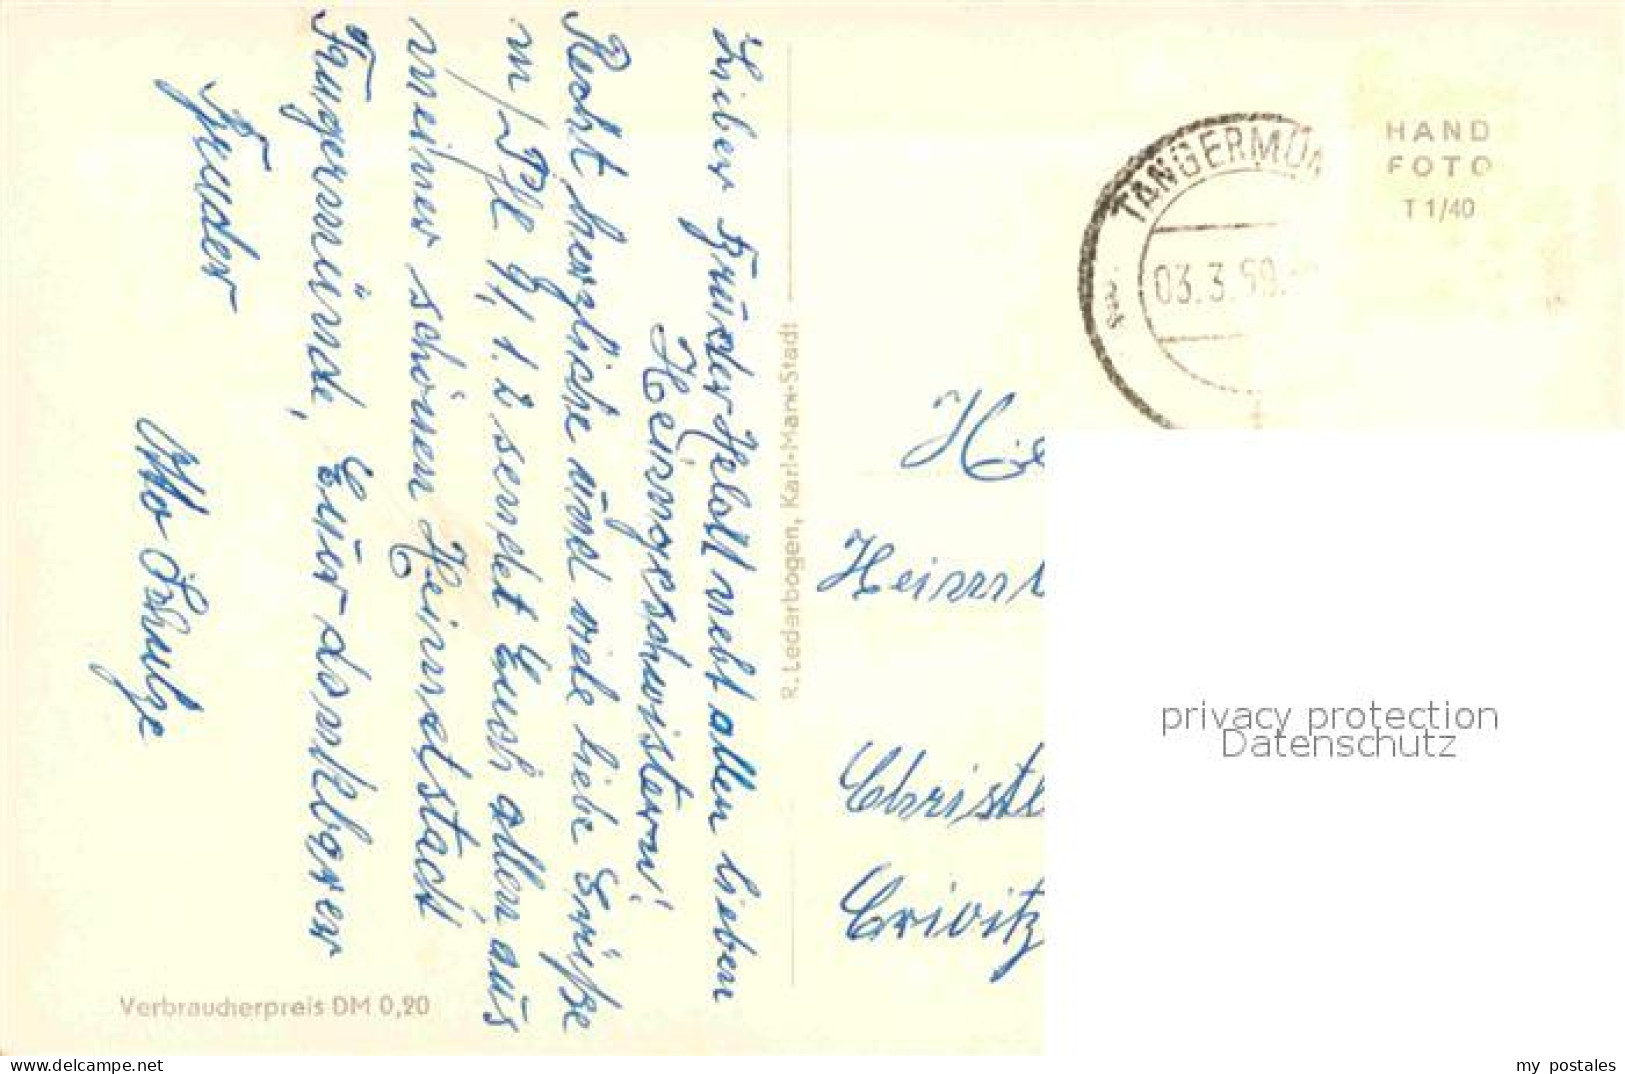 Lieber Bruder Heldt nebst allen lieben
Heimgeschwistern!
Recht herzliche und viele liebe Grüße
sendet Euch allen aus
meiner schönen Heimatstadt
Tangermünde, Euer dankbarer
Bruder
Otto Schulze
R. Lederbogen, Karl-Marx-Stadt
Verbraucherpreis DM 0,20
TANGERMÜN
03.3.59.
HAND
FOTO
T 1/40
Christ
Crivitz
privacy protection
Datenschutz
my postales